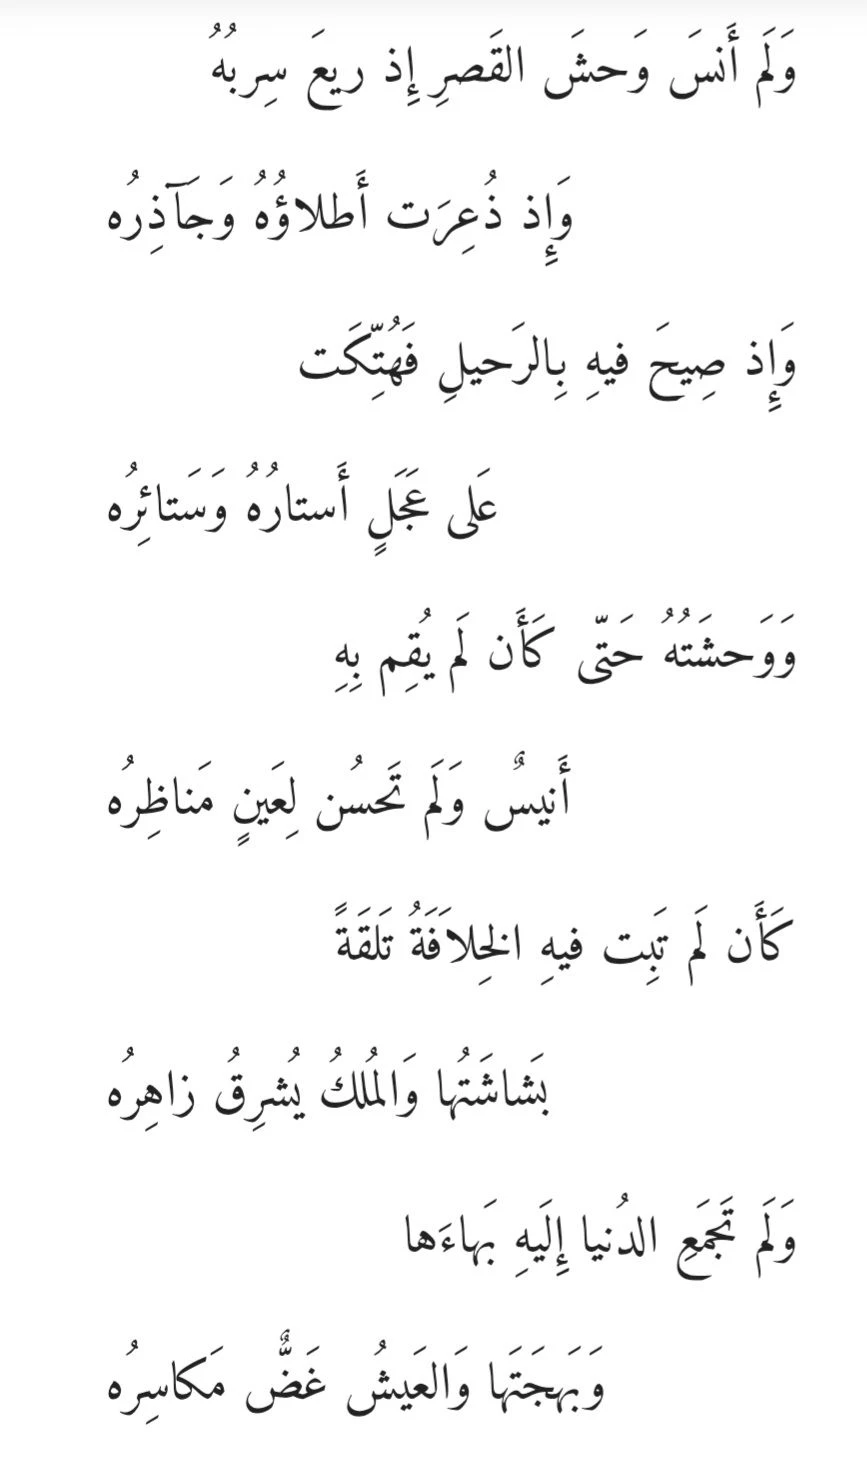 وَلَم أَنسَ وَحشَ القَصرِ إِذ ريعَ سِربُهُ
وَإِذ ذُعِرَت أَطلاؤُهُ وَجَآذِرُه
وَإِذ صِيحَ فيهِ بِالرَحيلِ فَهُتِّكَت
عَلى عَجَلٍ أَستارُهُ وَسَتائِرُه
وَوَحشَتُهُ حَتّى كَأَن لَم يُقِم بِهِ
أَنيسٌ وَلَم تَحسُن لِعَينٍ مَناظِرُه
كَأَن لَم تَبِت فيهِ الخِلاَفَةُ تَلَقَةً
بَشاشَتُها وَالمُلكُ يُشرِقُ زاهِرُه
وَلَم تَجمَعِ الدُنيا إِلَيهِ بَهاءَها
وَبَهجَتَها وَالعَيشُ غَضٌّ مَكاسِرُه